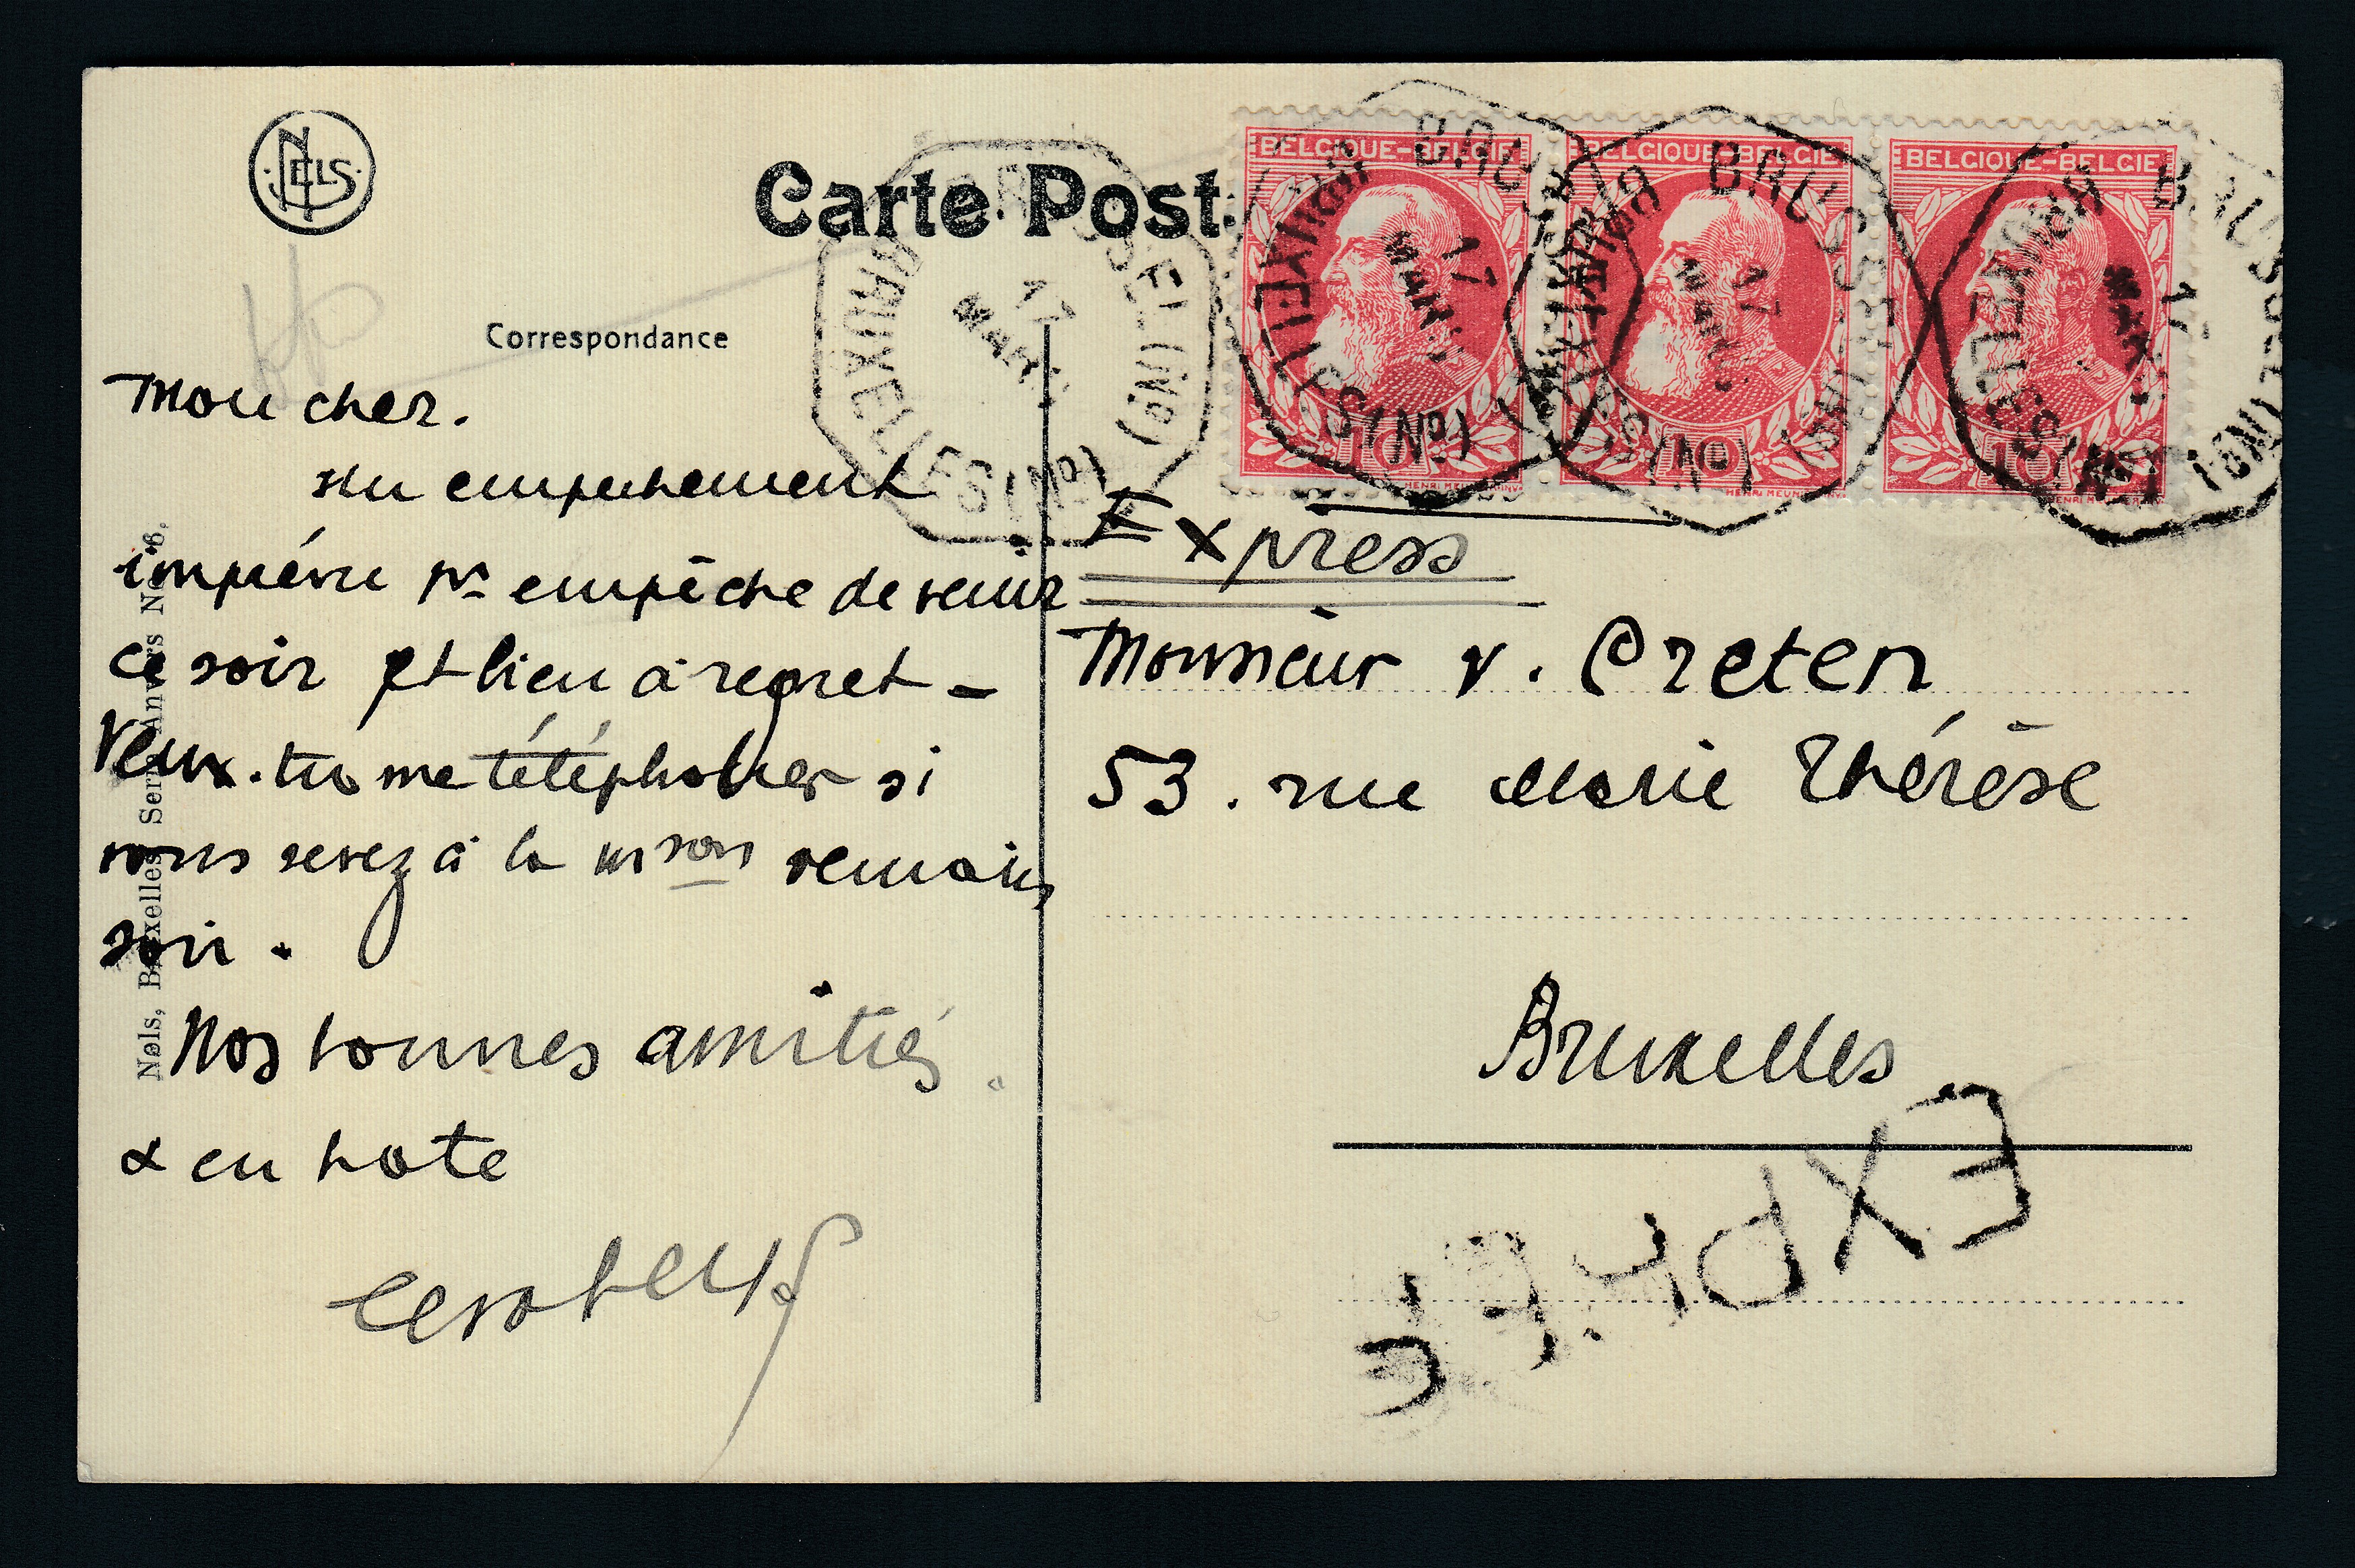 NELS
Carte Post
Correspondance
BELGIQUE-BELGIE
BELGIQUE-BELGIE
BELGIQUE-BELGIE
10
10
10
HENRI MEUNIER INV
BRUSSEL (Nd)
17
MARS
BRUXELLES (Nd)
Express
Mon cher.
un empechement
imprévu m'empêche de venir
ce soir et bien à regret -
Veux-tu me téléphoner si
vous serez à la mson demain
soir.
Nos bonnes amitiés.
& en hate
Monsieur V. Creten
53. rue Marie Thérèse
Bruxelles
EXPRES
Nels, Bruxelles Serie Anvers No 6.